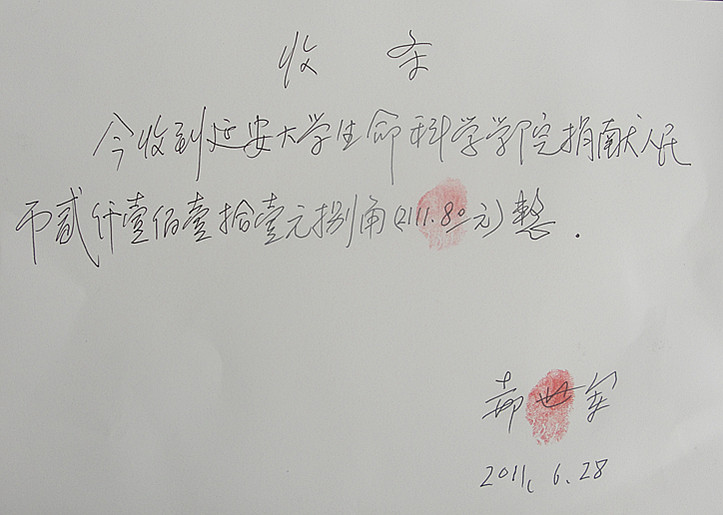 收 条
今收到延安大学生命科学学院捐献人民
币贰仟壹佰壹拾壹元捌角(2111.80元)整.
郝世军
2011. 6. 28